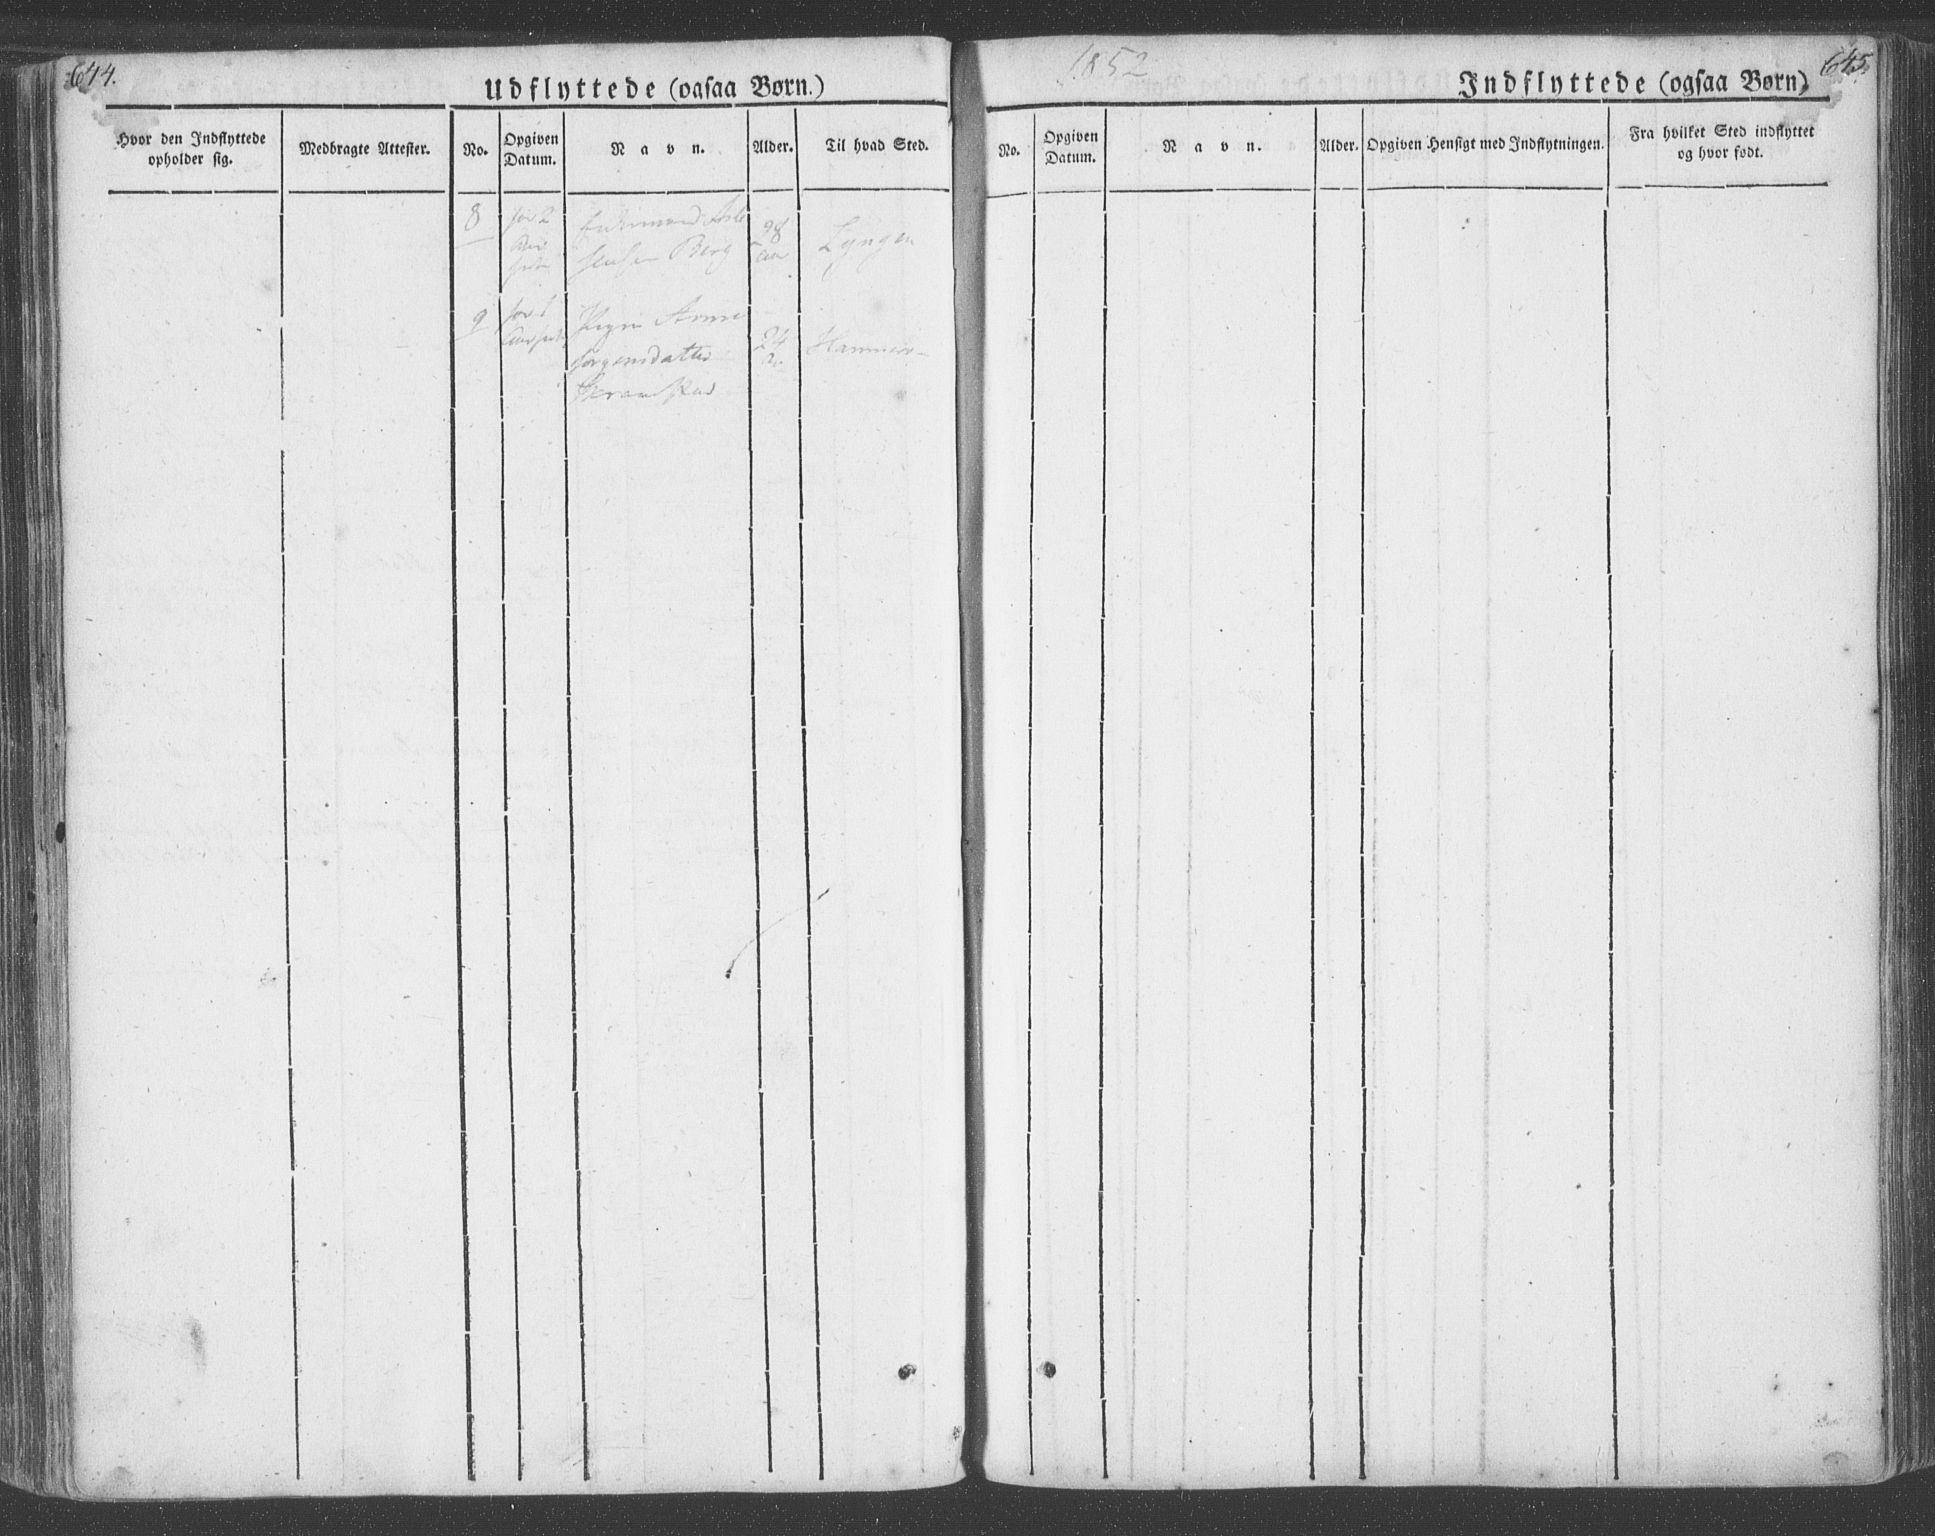 644.
Udflyttede (ogsaa Børn.)
Hvor den Indflyttede opholder sig.
Medbragte Attester.
No.
Opgiven Datum.
Navn.
Alder.
Til hvad Sted.
8
for 2
Berg
28
Lyngen
9
for 1
Anne
Jørgensdatter
24
Hammer
1852
645.
Indflyttede (ogsaa Børn)
No.
Opgiven Datum.
Navn.
Alder.
Opgiven Hensigt med Indflytningen.
Fra hvilket Sted indflyttet og hvor født.